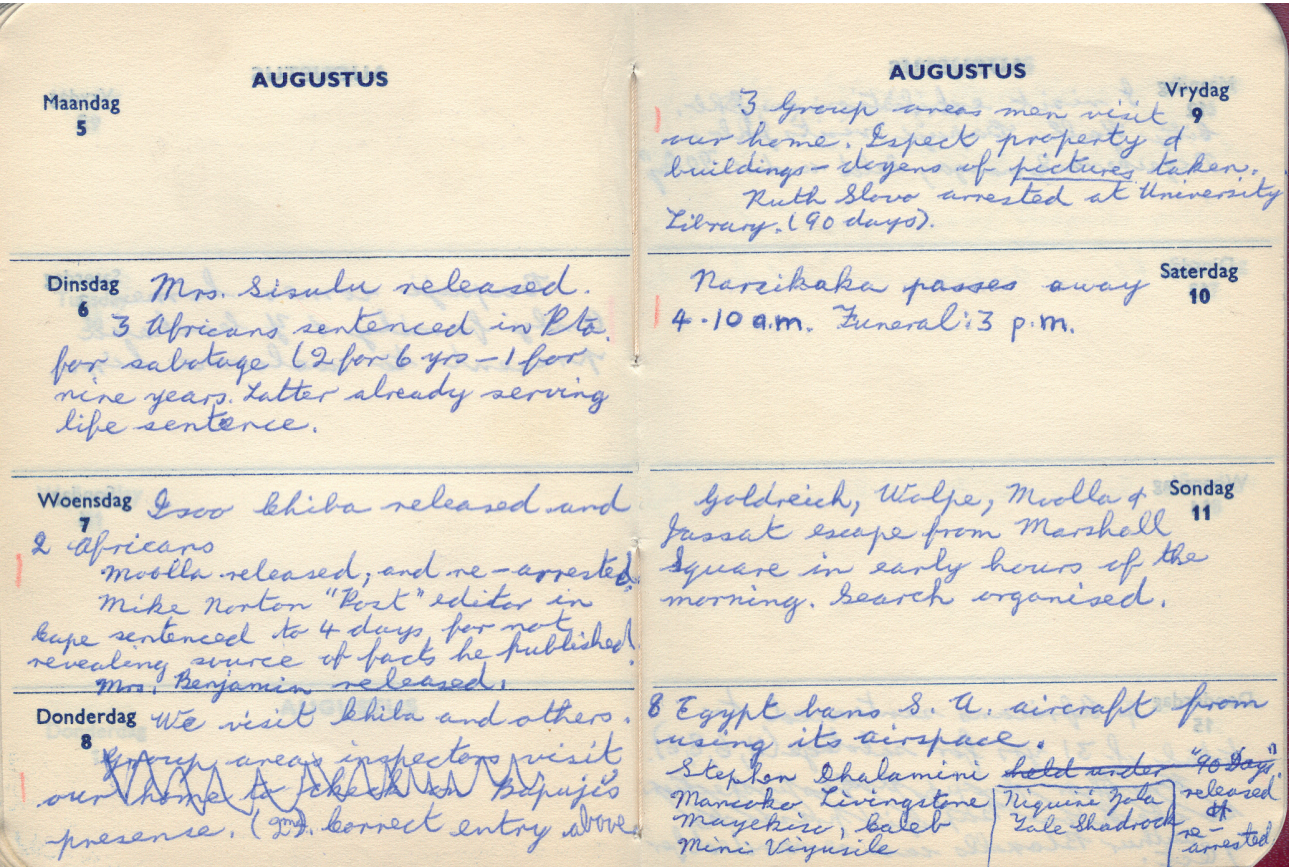 AUGUSTUS
Maandag
5
Dinsdag
6
Mrs. Sisulu released.
3 Africans sentenced in Pta.
for sabotage (2 for 6 yrs – 1 for
nine years. Latter already serving
life sentence.
Woensdag
7
Isoo Chiba released and
2 Africans
Moolla released, and re-arrested.
Mike Norton "Post" editor in
Cape sentenced to 4 days for not
revealing source of facts he published.
Mrs. Benjamin released.
Donderdag
8
We visit Chiba and others.
Group areas inspectors visit
our home to check on Bapuji's
presence. (2nd). Correct entry above
AUGUSTUS
Vrydag
9
3 Group areas men visit
our home. Ispect property &
buildings – doyens of pictures taken.
Ruth Slovo arrested at University
Library. (90 days).
Saterdag
10
Narsikaka passes away
4.10 a.m. Funeral: 3 p.m.
Sondag
11
Goldreich, Wolpe, Moolla &
Jassat escape from Marshall
Square in early hours of the
morning. Search organised.
8 Egypt bans S. A. aircraft from
using its airspace.
Stephen Dhalamini held under "90 Days"
Mancoko Livingstone
Mayekiso, Caleb
Mini Viyusile
Niquini Zola
Yale Shadrock
released
&
re-
arrested